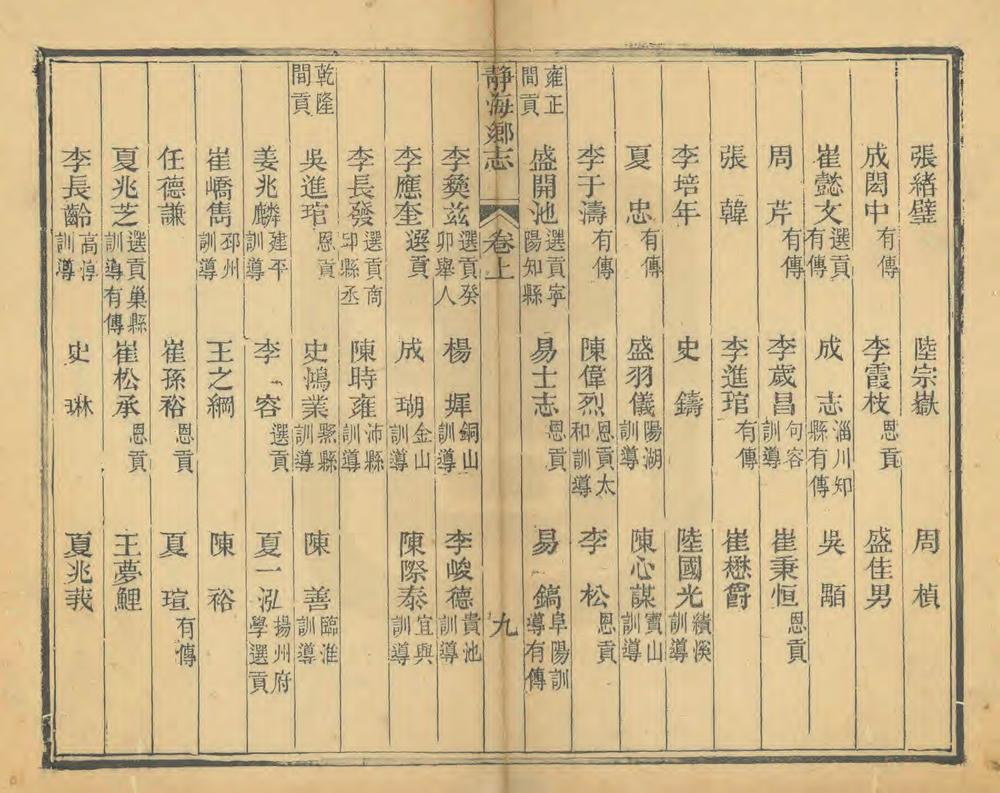 張緒璧　陸宗嶽　周楨
成閎中有傳　李霞枝恩貢　盛佳男
崔懿文選貢有傳　成志淄川知縣有傳　吳顒
周芹有傳　李歲昌句容訓導　崔秉恒恩貢
張韓　李進琯有傳　崔懋爵
李培年　史鑄　陸國光績溪訓導
夏忠有傳　盛羽儀陽湖訓導　陳心謀寶山訓導
李于濤有傳　陳偉烈恩貢太和訓導　李松恩貢
雍正間貢　盛開池選貢寧陽知縣　易士志恩貢　易鎬阜陽訓導有傳
靜海鄉志　卷上　九
李彝茲選貢癸卯舉人　楊墀銅山訓導　李峻德貴池訓導
李應奎選貢　成瑚金山訓導　陳際泰宜興訓導
李長發選貢商邱縣丞　陳時雍沛縣訓導
乾隆間貢　吳進琯恩貢　史鴻業黟縣訓導　陳善臨淮訓導
姜兆麟建平訓導　李容選貢　夏一泓揚州府學選貢
崔嶠雋邳州訓導　王之綱　陳裕
任德謙　崔孫裕恩貢　夏瑄有傳
夏兆芝選貢巢縣訓導有傳　崔松承恩貢　王夢鯉
李長齡高淳訓導　史琳　夏兆莪